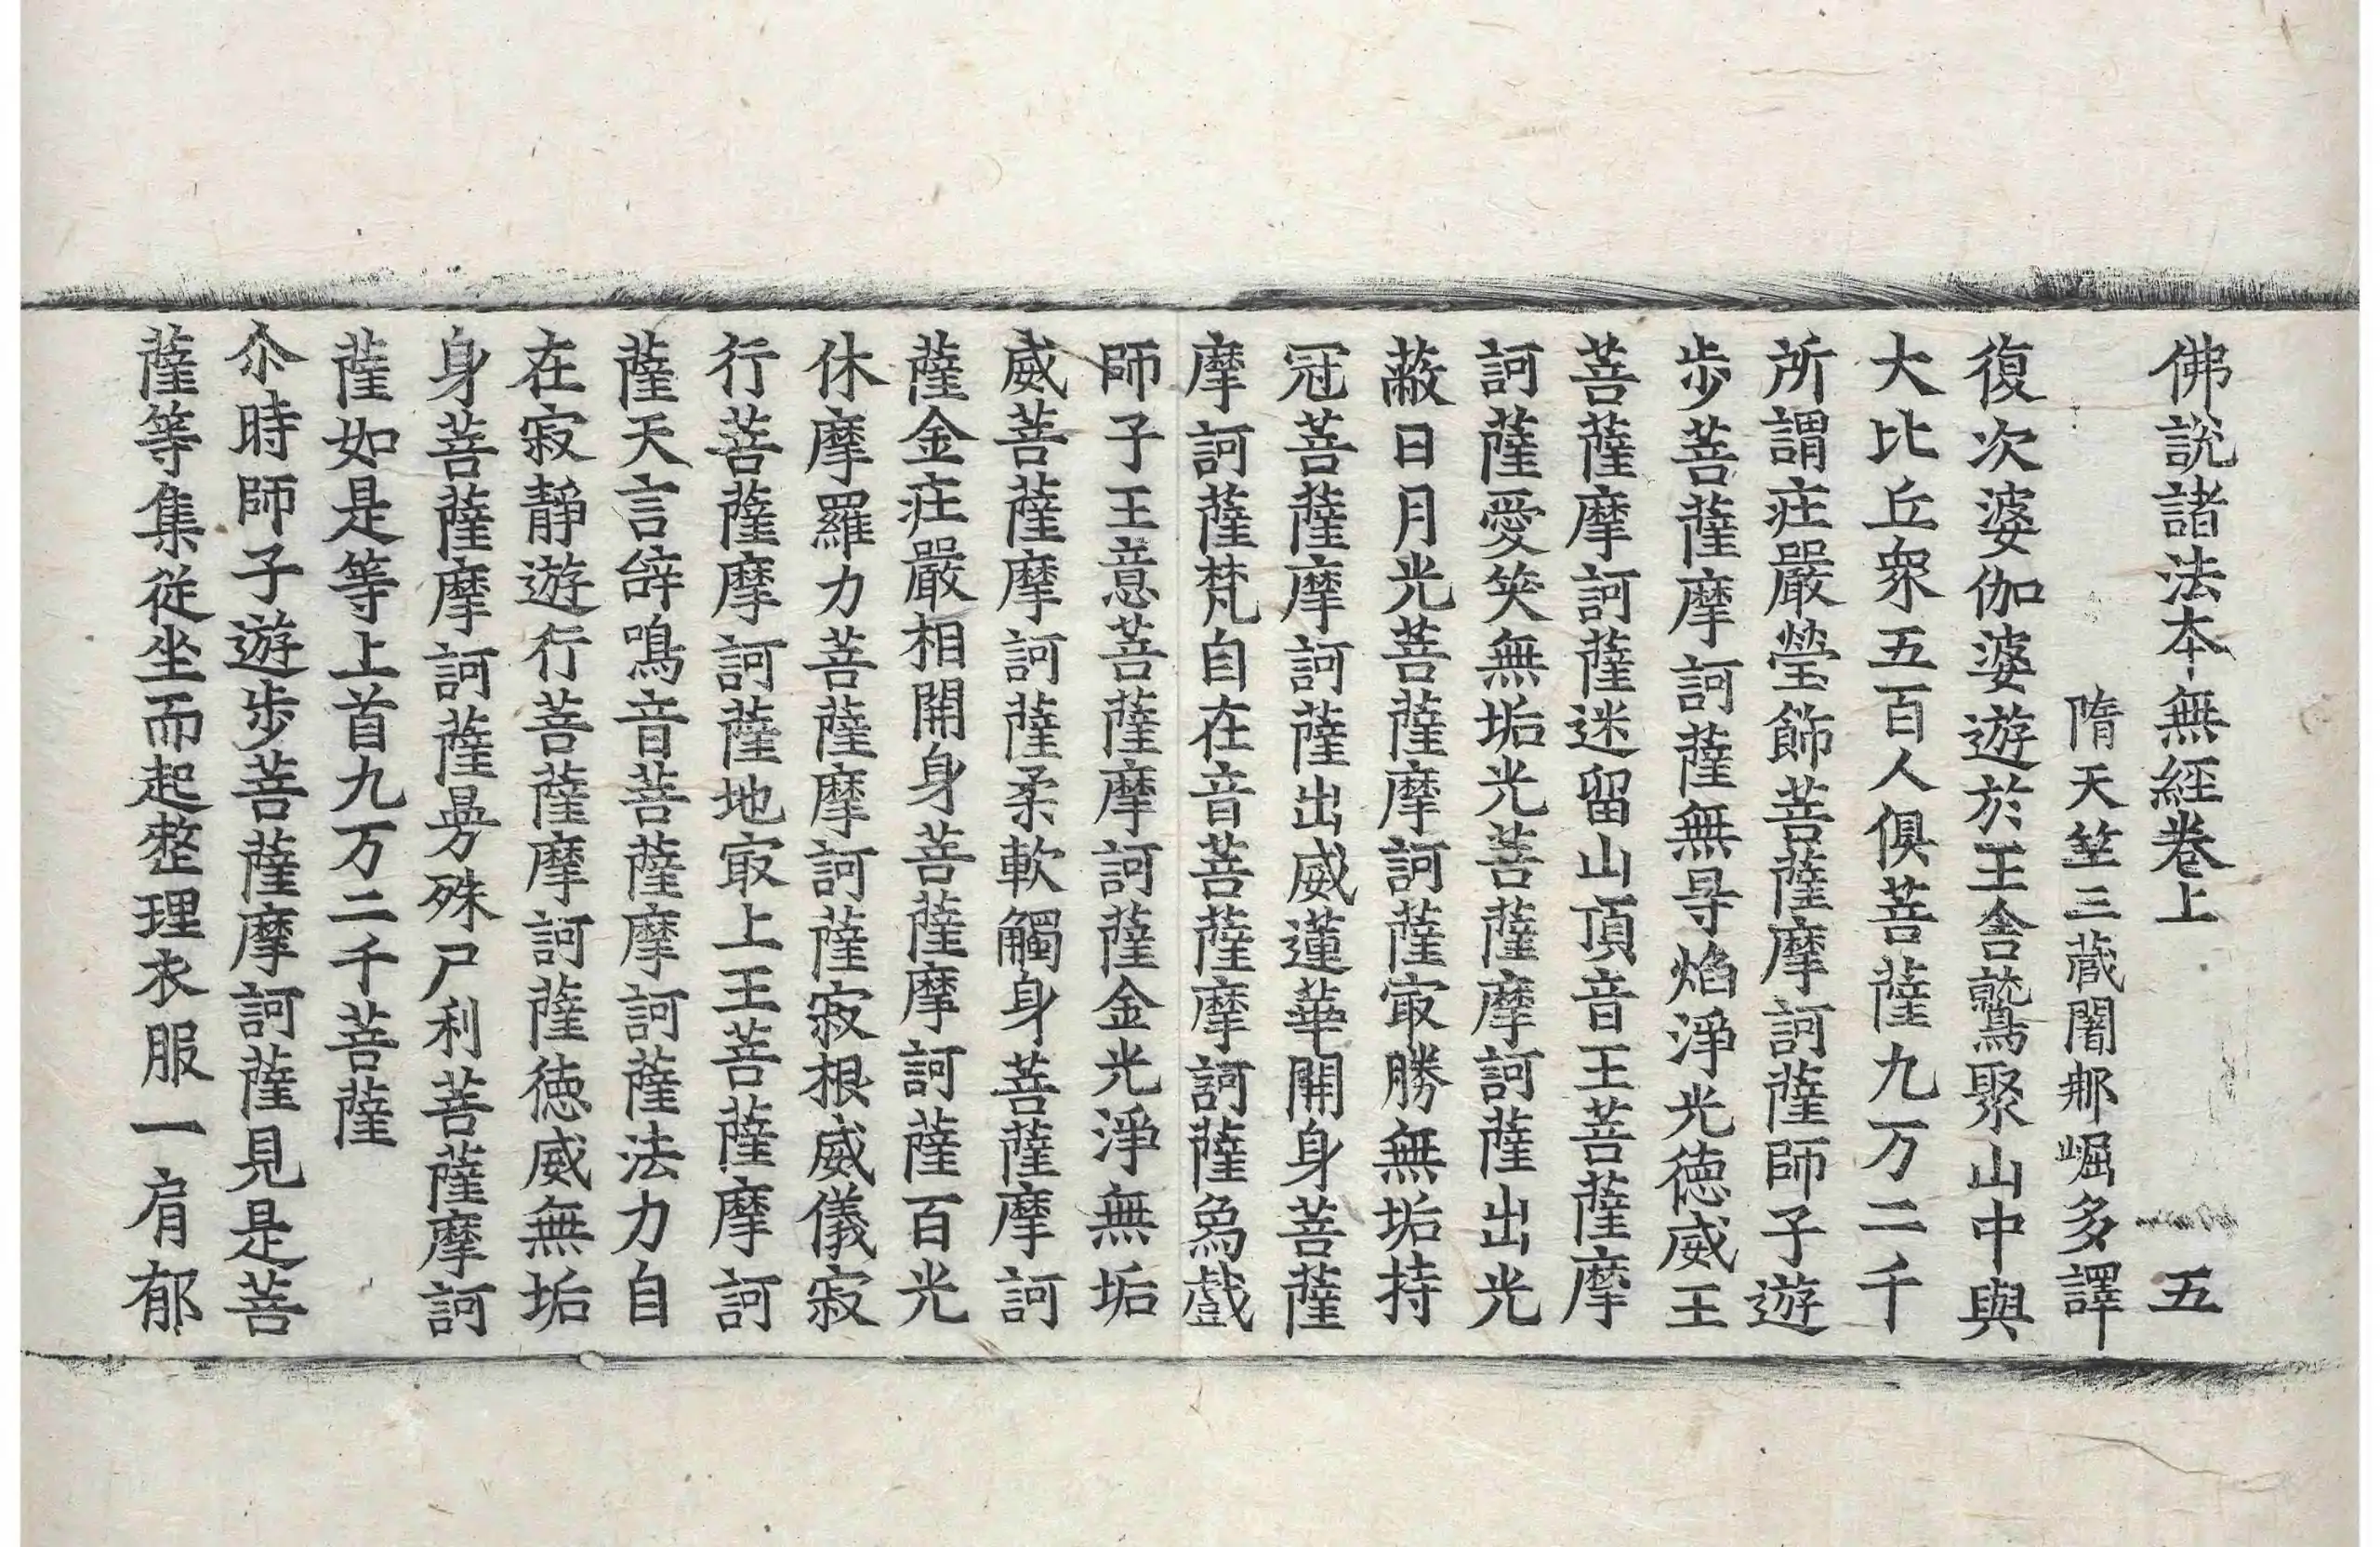 佛說諸法本無經卷上 五
隋天竺三藏闍那崛多譯
復次婆伽婆遊於王舍鷲聚山中與
大比丘衆五百人俱菩薩九万二千
所謂庄嚴瑩飾菩薩摩訶薩師子遊
步菩薩摩訶薩無㝵焰淨光德威王
菩薩摩訶薩迷留山頂音王菩薩摩
訶薩愛笑無垢光菩薩摩訶薩出光
蔽日月光菩薩摩訶薩㝡勝無垢持
冠菩薩摩訶薩出威蓮華開身菩薩
摩訶薩梵自在音菩薩摩訶薩爲戲
師子王意菩薩摩訶薩金光淨無垢
威菩薩摩訶薩柔軟觸身菩薩摩訶
薩金庄嚴相開身菩薩摩訶薩百光
休摩羅力菩薩摩訶薩寂根威儀寂
行菩薩摩訶薩地㝡上王菩薩摩訶
薩天言辝鳴音菩薩摩訶薩法力自
在寂靜遊行菩薩摩訶薩德威無垢
身菩薩摩訶薩曼殊尸利菩薩摩訶
薩如是等上首九万二千菩薩
尒時師子遊步菩薩摩訶薩見是菩
薩等集從坐而起整理衣服一肩郁